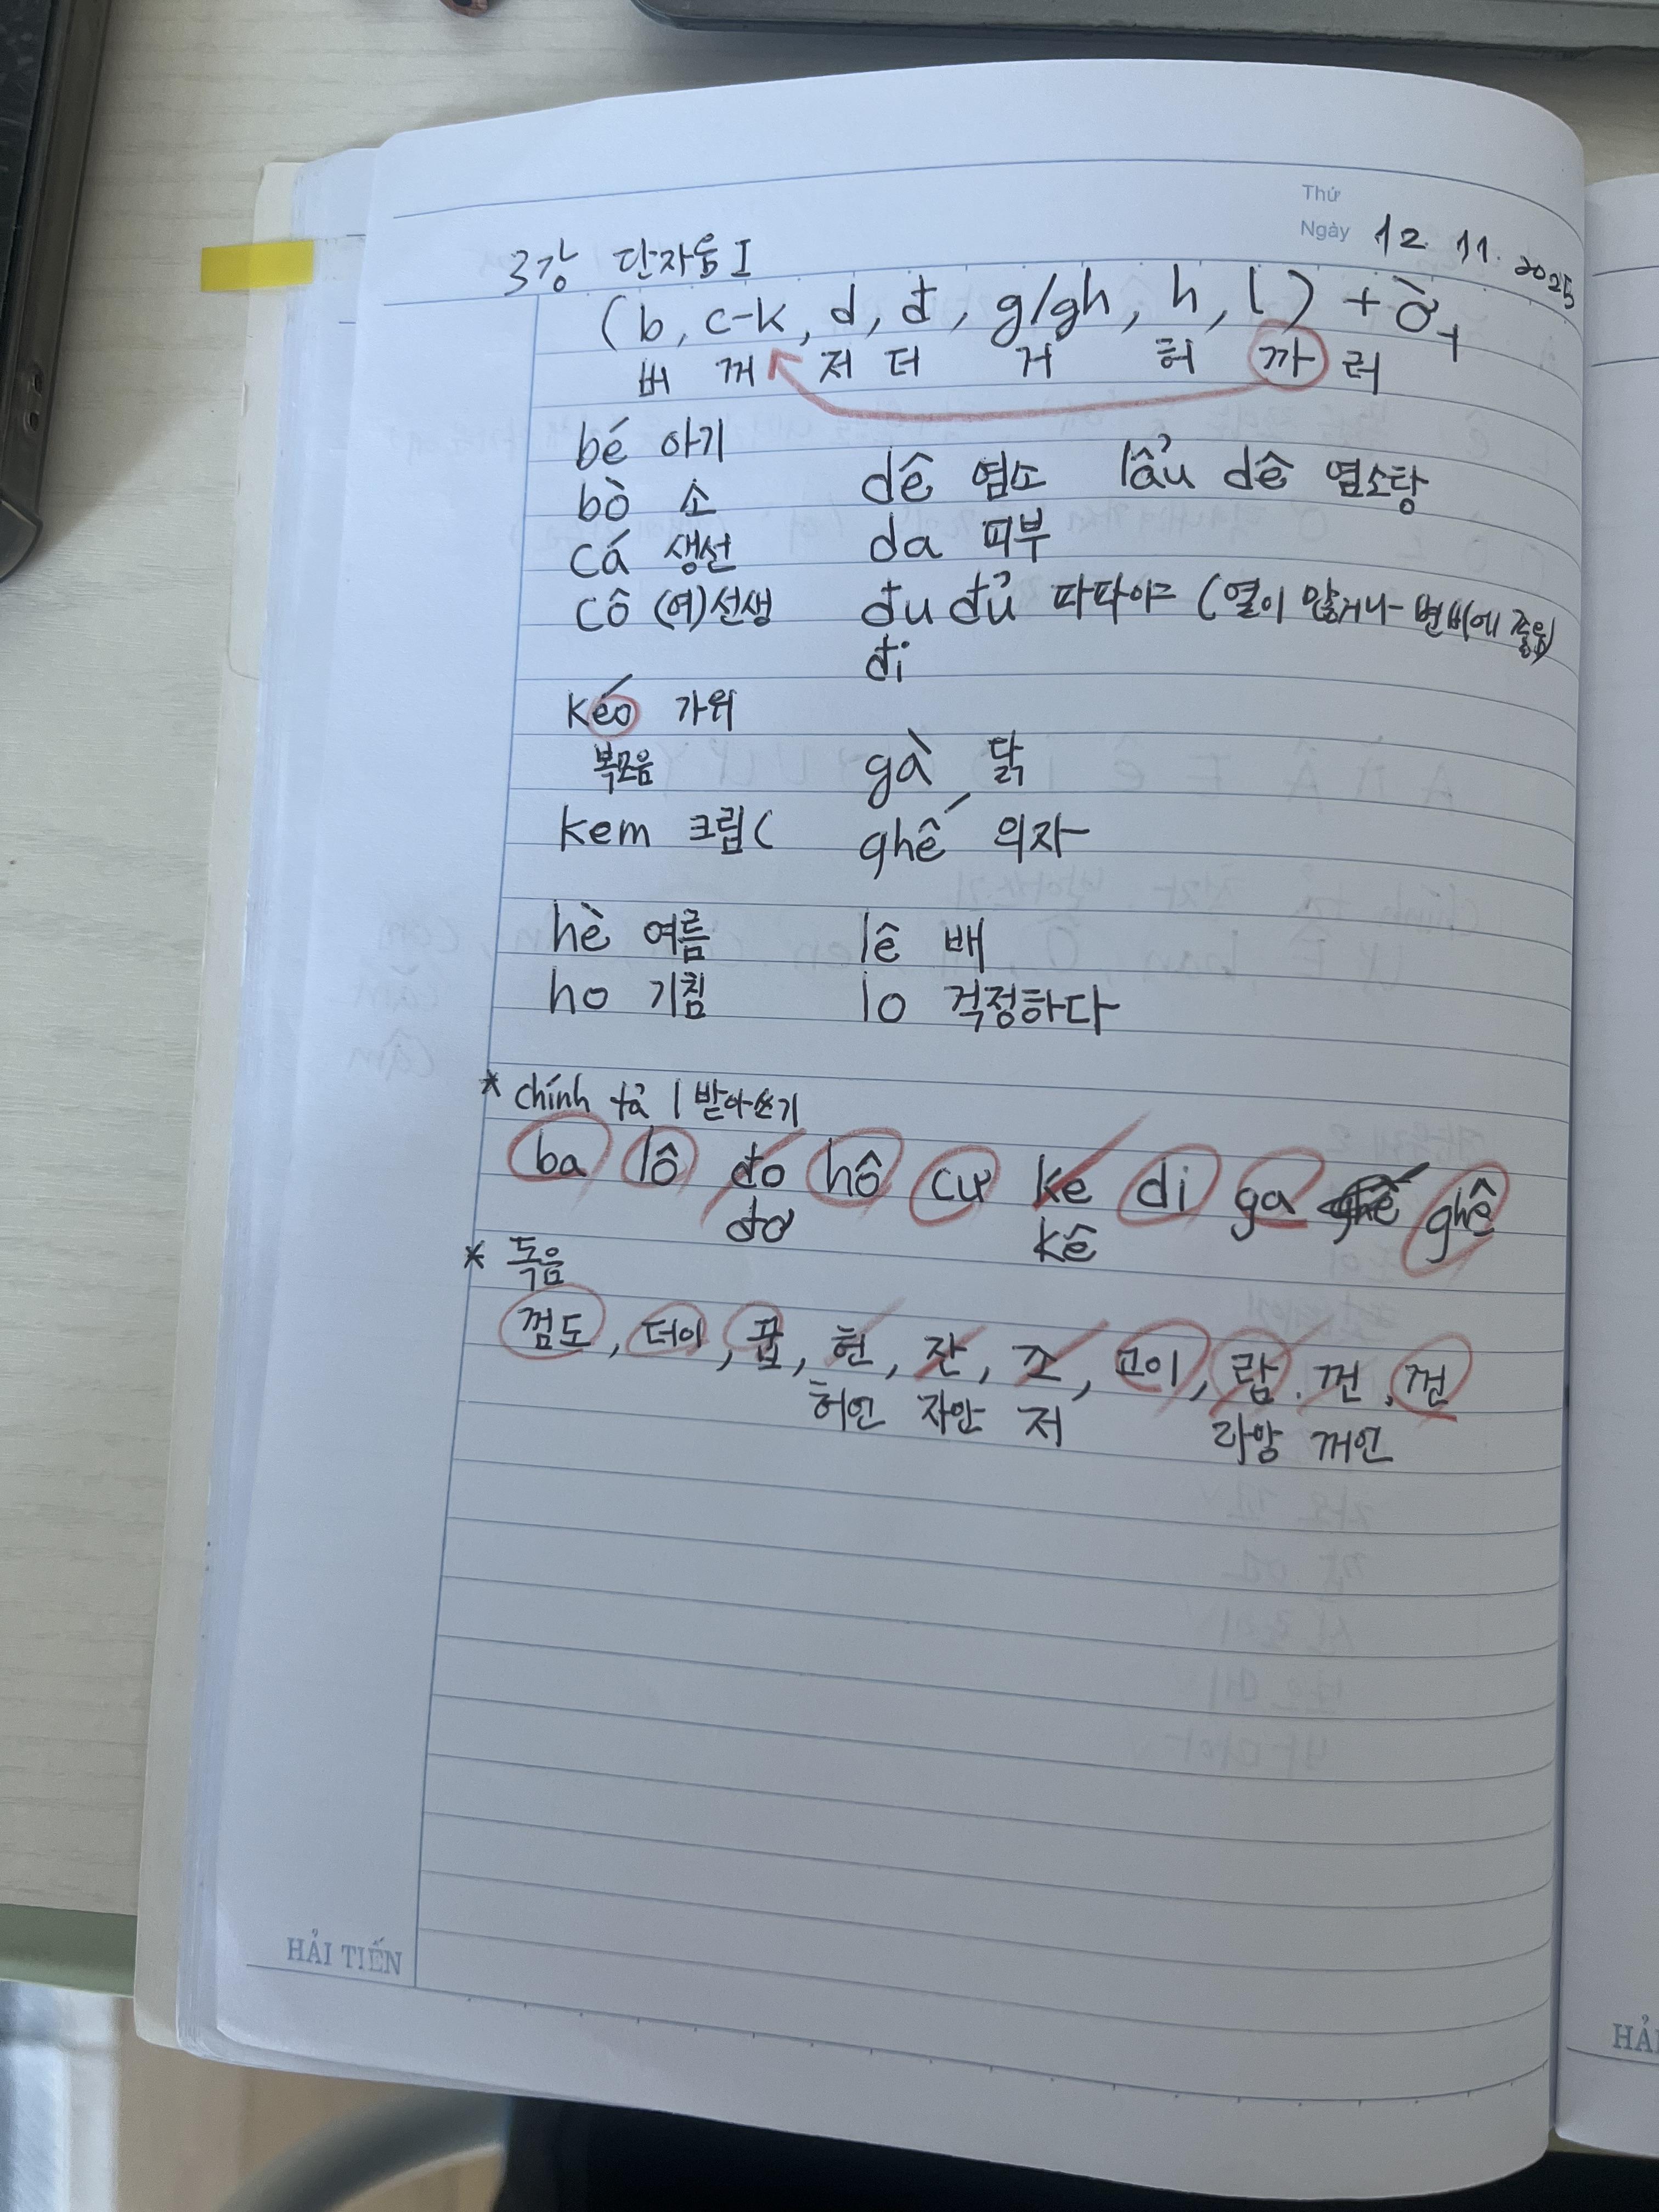 Thứ
Ngày 12. 11. 2025
3강 단자음 I
(b, c-k, d, đ, g/gh, h, l) + ờ
버 꺼 저 더 거 허 까 러
bé 아기
bò 소 dê 염소 lẩu dê 염소탕
cá 생선 da 피부
cô (여)선생 đu đủ 파파야 (열이 많거나 변비에 좋음)
đi
kéo 가위
복모음 gà 닭
kem 크림( ghế 의자
hè 여름 lê 배
ho 기침 lo 걱정하다
* chính tả | 받아쓰기
ba lô đo hô cư ke di ga ghê
đơ kê
* 독음
껌도, 더이, 꿉, 헌, 잔, 조, 고이, 랍. 껀, 껀
허언 자안 저 라앙 꺼언
HẢI TIẾN
HẢI